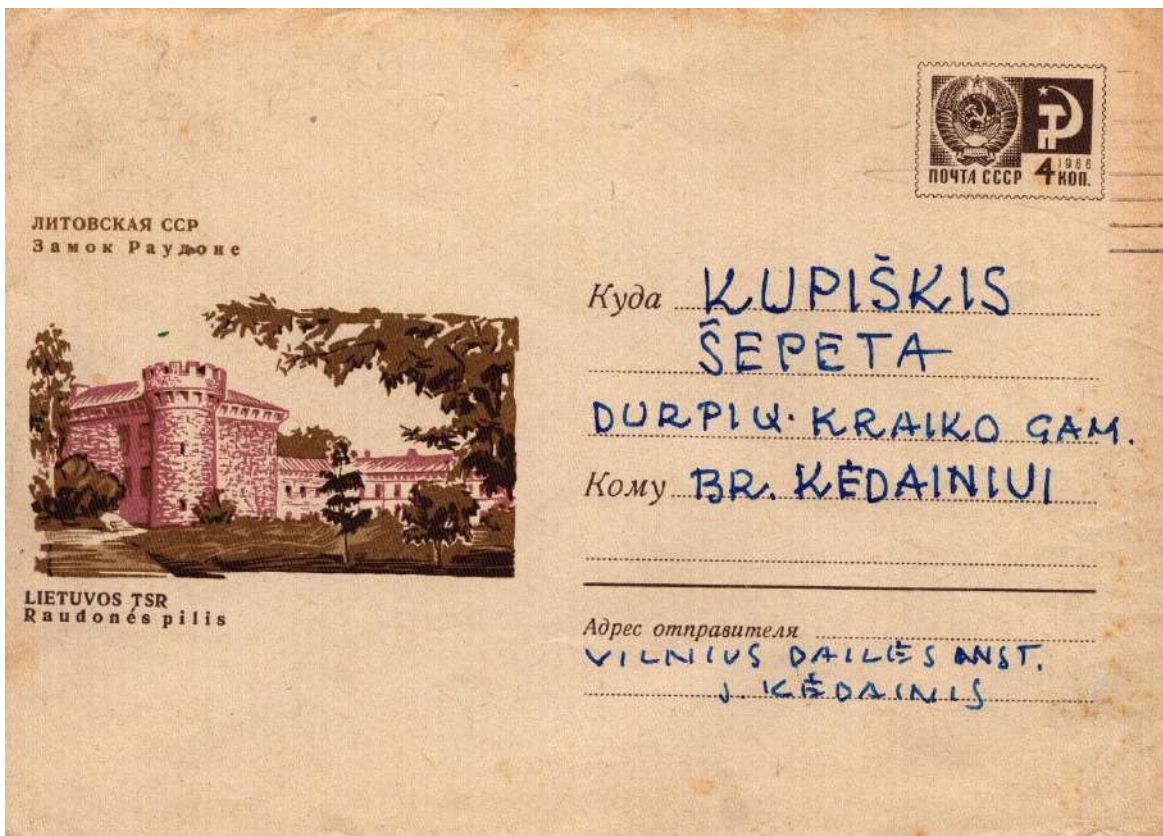 ПОЧТА СССР 4 1966 КОП.
ЛИТОВСКАЯ ССР
Замок Раудоне
LIETUVOS TSR
Raudonės pilis
Куда KUPIŠKIS
ŠEPETA
DURPIŲ. KRAIKO GAM.
Кому BR. KĖDAINIUI
Адрес отправителя
VILNIUS DAILĖS INST.
J. KĖDAINIS